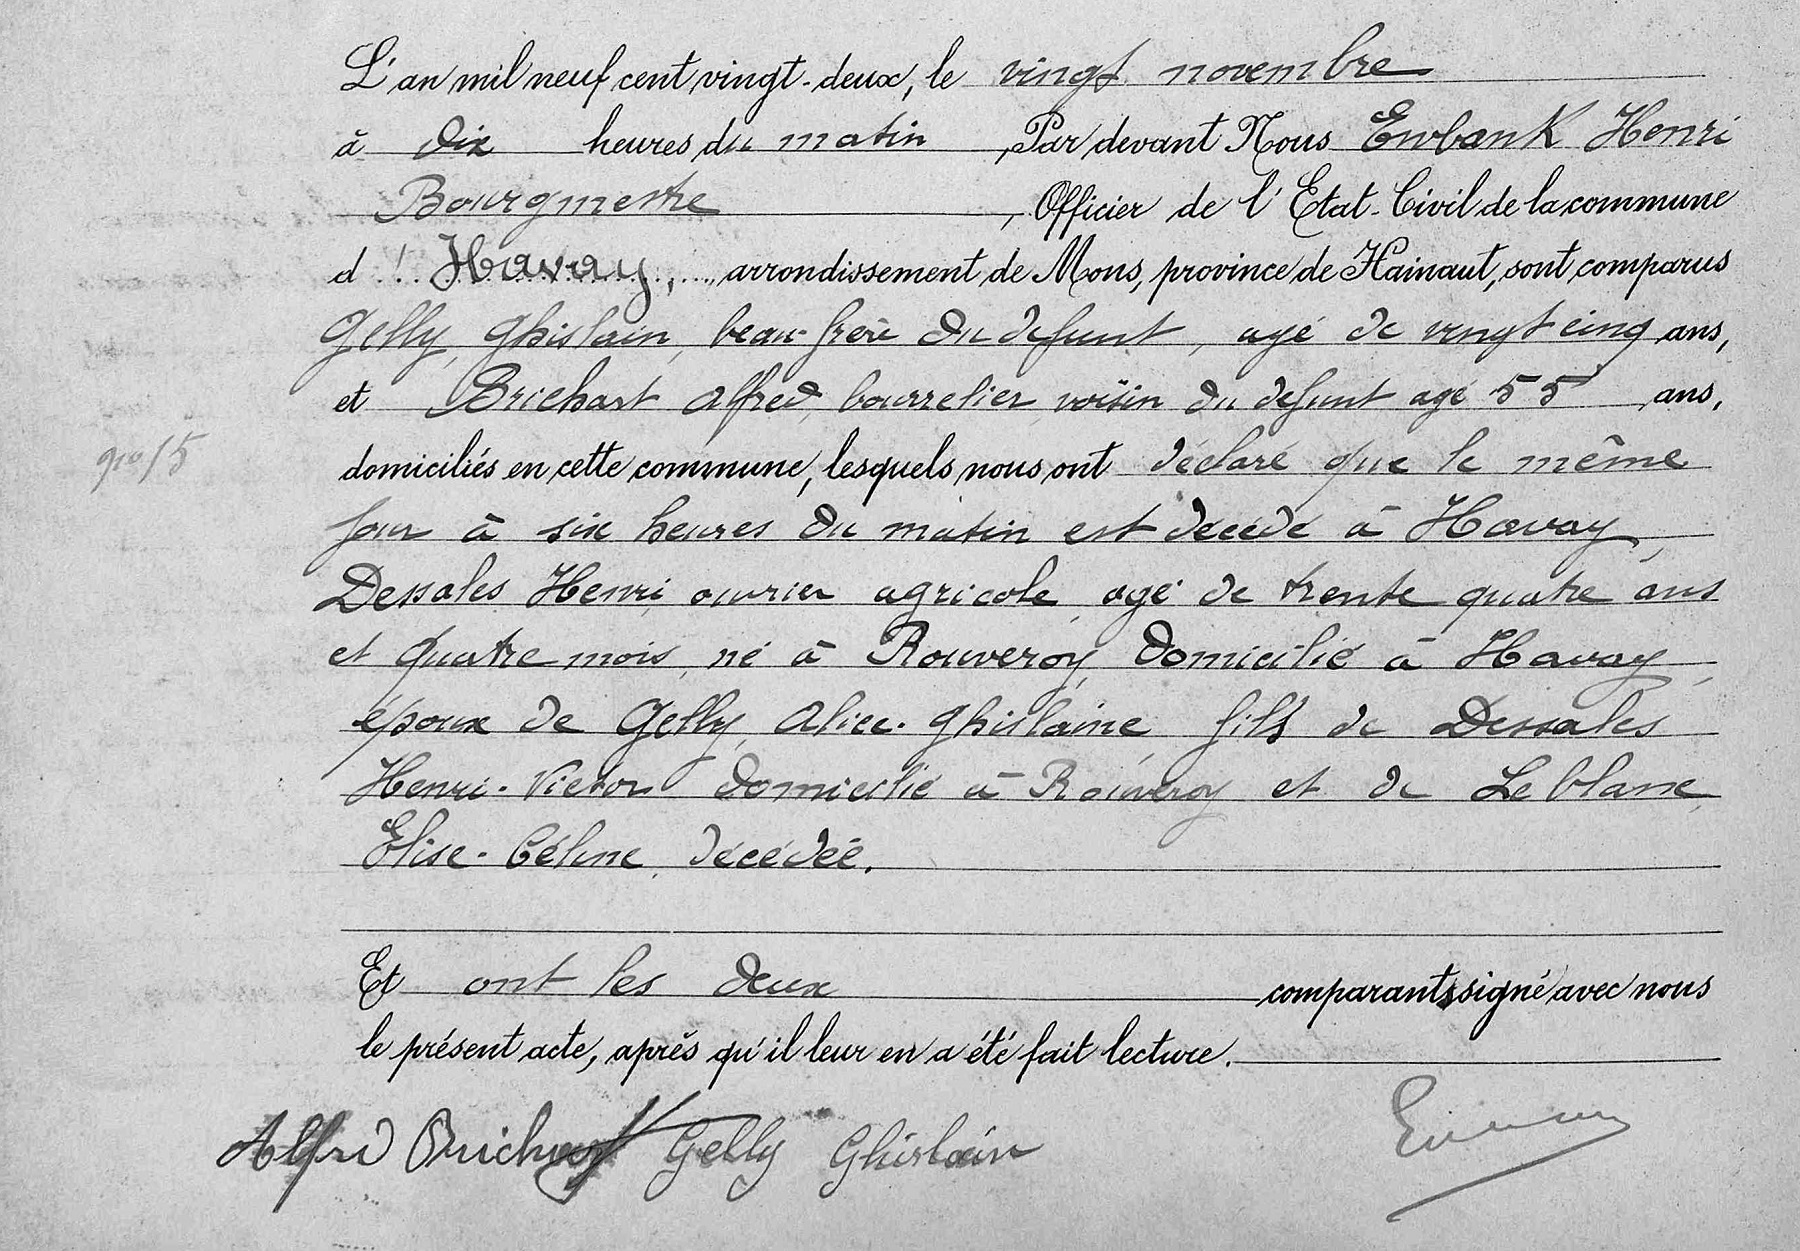 L'an mil neuf cent vingt-deux, le vingt novembre
à dix heures du matin, Par devant Nous Ewbank Henri
Bourgmestre, Officier de l'Etat-Civil de la commune
d'Havay, arrondissement de Mons, province de Hainaut, sont comparus
Gelly, Ghislain, beau-frère du défunt, agé de vingt cinq ans,
et Brichart Alfred, bourrelier, voisin du défunt agé 55 ans,
domiciliés en cette commune, lesquels nous ont déclaré que le même
jour à six heures du matin est décédé à Havay,
Dessales Henri, ouvrier agricole, agé de trente quatre ans
et quatre mois, né à Rouveroy, domicilié à Havay,
époux de Gelly, Alice-Ghislaine, fils de Dessales
Henri-Victor domicilié à Rouveroy et de Leblanc,
Elise-Céline, décédée.
Et ont les deux comparants signé avec nous
le présent acte, après qu'il leur en a été fait lecture.
Alfred Brichart Gelly Ghislain